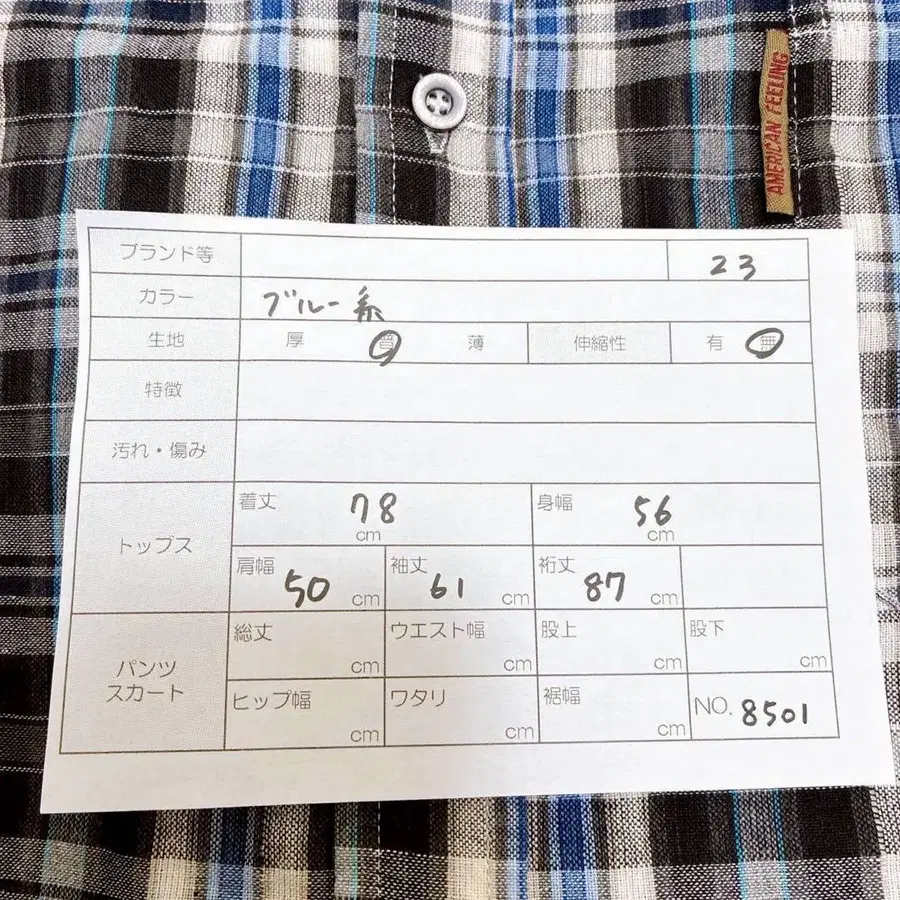 AMERICAN FEELING
ブランド等 23
カラー ブルー系
生地 厚 普 薄 伸縮性 有 無
特徴
汚れ・傷み
トップス 着丈 78 cm 身幅 56 cm
肩幅 50 cm 袖丈 61 cm 裄丈 87 cm
パンツ スカート 総丈 cm ウエスト幅 cm 股上 cm 股下 cm
ヒップ幅 cm ワタリ cm 裾幅 cm NO. 8501